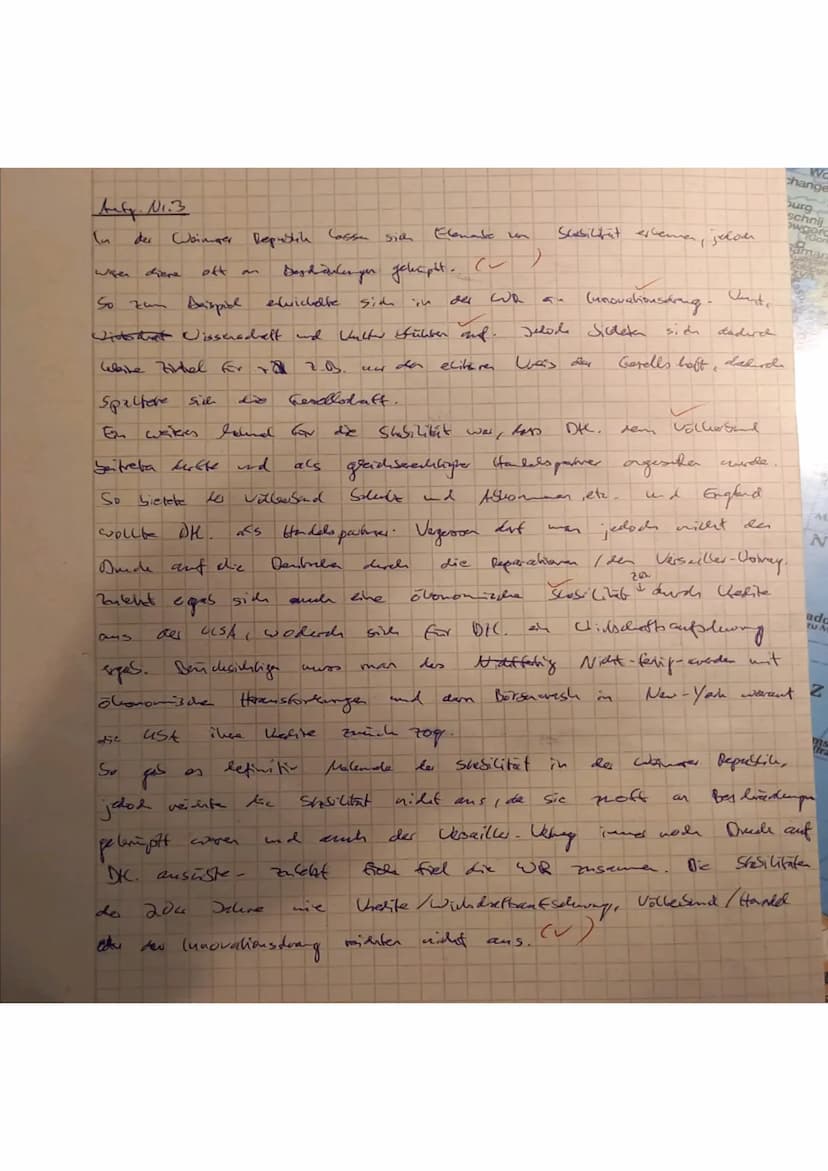 Aufg. Nr.3
In der Weimarer Republik lassen sich Elemente von Stabilität erkennen, jedoch
waren diese oft an Beschränkungen geknüpft. (✓)
So zum Beispiel entwickelte sich in der WR ein Innovationsdrang. Kunst,
Wissenschaft und Kultur blühten auf. Jedoch bildeten sich dadurch
kleine Zirkel für z.B. nur den elitären Kreis der Gesellschaft, dadurch
spaltete sich die Gesellschaft.
Ein weiteres Merkmal für die Stabilität war, dass Dtl. dem Völkerbund
beitreten durfte und als gleichberechtigter Handelspartner angesehen wurde.
So bietete der Völkerbund Schutz und Abkommen, etc. und England
wollte Dtl. als Handelspartner. Vergessen darf man jedoch nicht den
Druck auf die Deutschen durch die Reparationen / den Versailler-Vertrag.
Zuletzt ergab sich auch eine ökonomische Stabilität z.B. durch Kredite
aus der USA, wodurch sich für Dtl. ein Wirtschaftsaufschwung
ergab. Berücksichtigen muss man das Nicht-fertig-werden mit
ökonomische Herausforderungen und dem Börsencrash in New-York worauf
die USA ihre Kredite zurück zog.
So gab es definitiv Merkmale der Stabilität in der Weimarer Republik,
jedoch reichte die Stabilität nicht aus, da sie oft an Beschränkungen
geknüpft waren und auch der Versailler-Vertrag immer noch Druck auf
Dtl. ausübte - zuletzt fiel die WR zusammen. Die Stabilitäten
der 20er Jahre wie Kredite/Wirtschaftsaufschwung, Völkerbund/Handel
der Innovationsdrang reichten nicht aus. (✓)